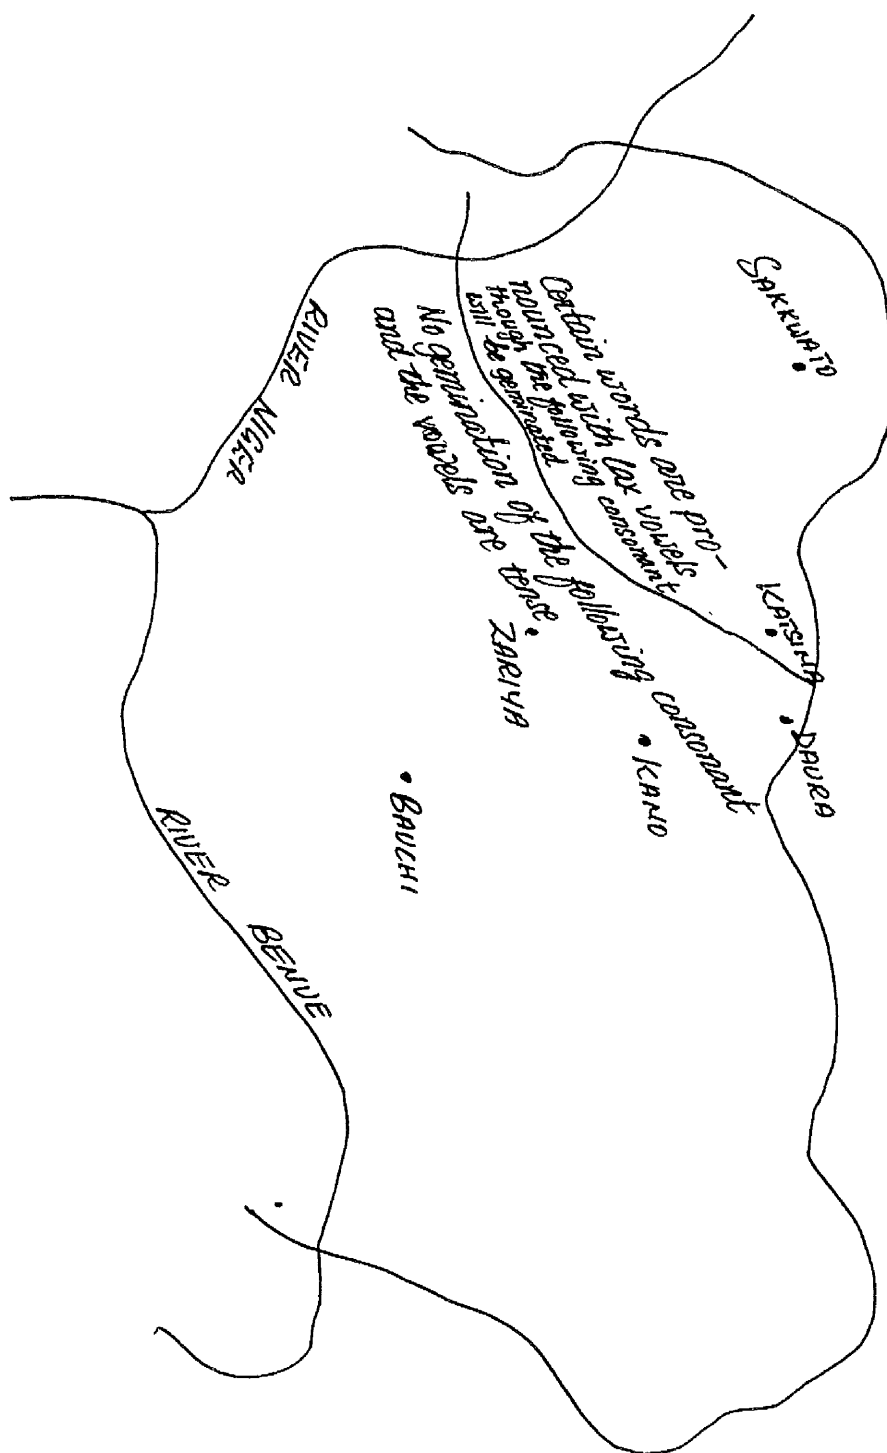 SAKKWATO
KATSINA
DAURA
Certain words are pro-
nounced with lax vowels
though the following consonant
will be geminated
No gemination of the following consonant
and the vowels are tense
KANO
ZARIYA
BAUCHI
RIVER NIGER
RIVER BENUE